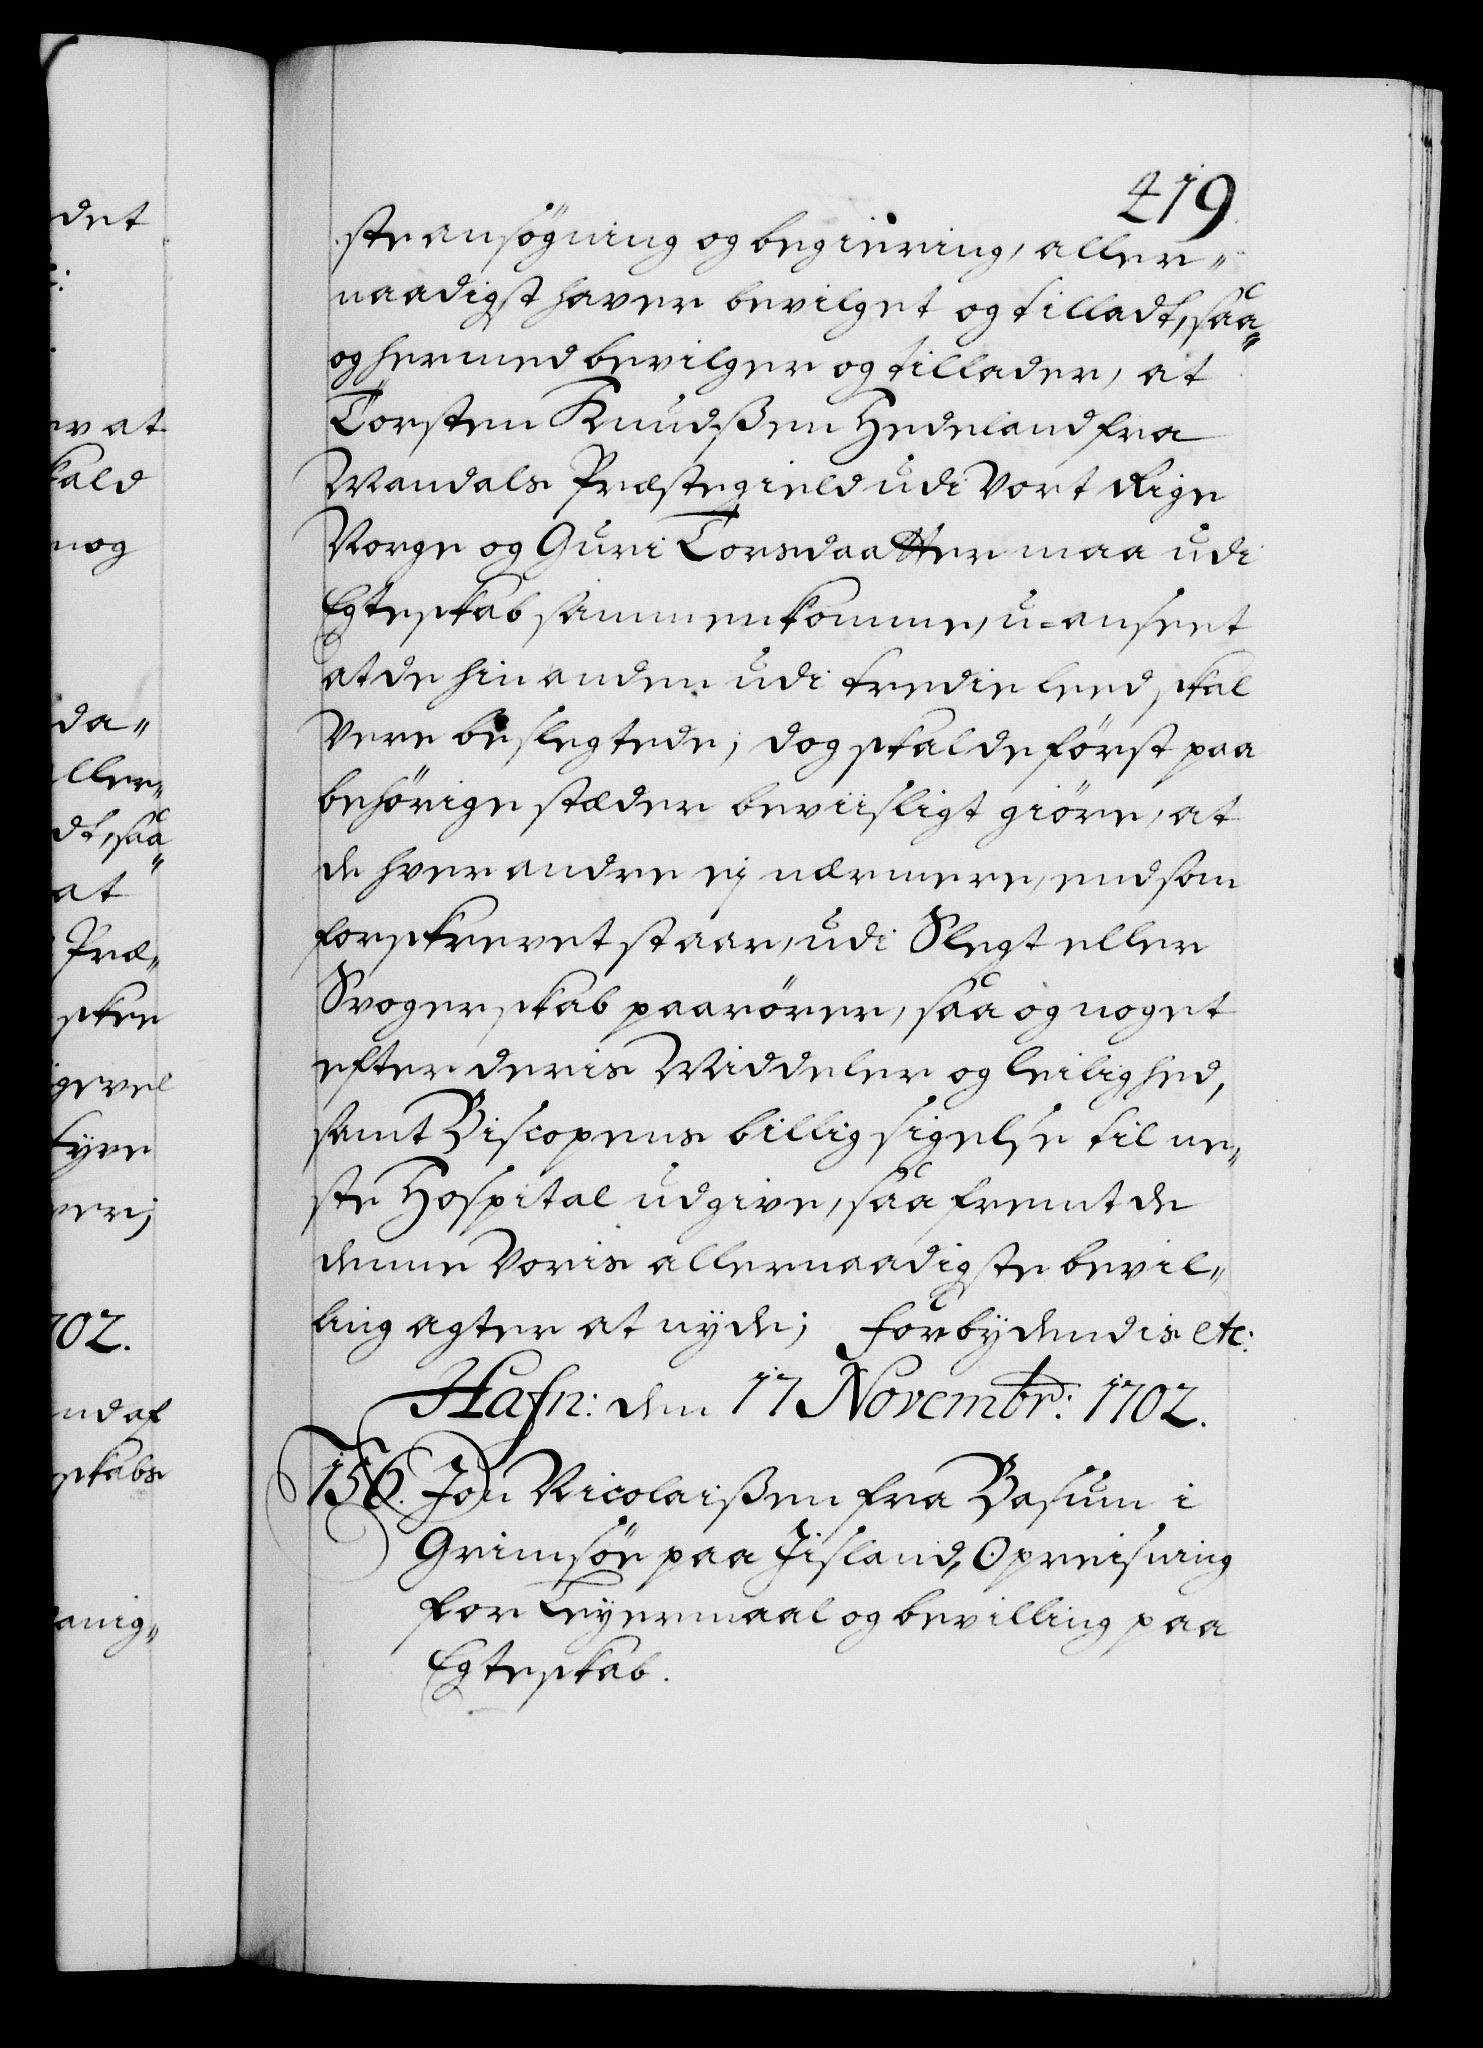 419
ste ansøgning og begiering, aller-
naadigst haver bevilget og tilladt, saa-
og hermed bevilger og tillader, at
Torsten Knudssen Hedeland fra
Mandals Præstegield udi Vort Rige
Norge og Guri Torsdaatter maa udi
Egteskab sammenkomme, u-anseet
at de hin anden udi tredie leed skal
være beslegtede; dog skal de først paa
behørige stæder beviisligt giøre, at
de hver andre ej nærmere, end som
forskrevet staar, udi Slegt eller
Svogerskab paarører, saa og noget
efter deris Middeler og leilighed,
samt Biscopens billig sigelse til ne-
ste Hospital udgive, saa fremt de
denne Voris allernaadigste bevil-
ling agter at nyde; Forbydendis etc:
Hafn: den 17 Novembr: 1702.
156. Jon Nicolaissen fra Basum i
Grimsøe paa Iisland, Opreisning
for Leyermaal og bevilling paa
Egteskab.
det
at
kald
nog
da-
ller-
dt, saa-
at
Præ-
skee
gevel
fyre
ver;
702.
nd af
skabs
anig-